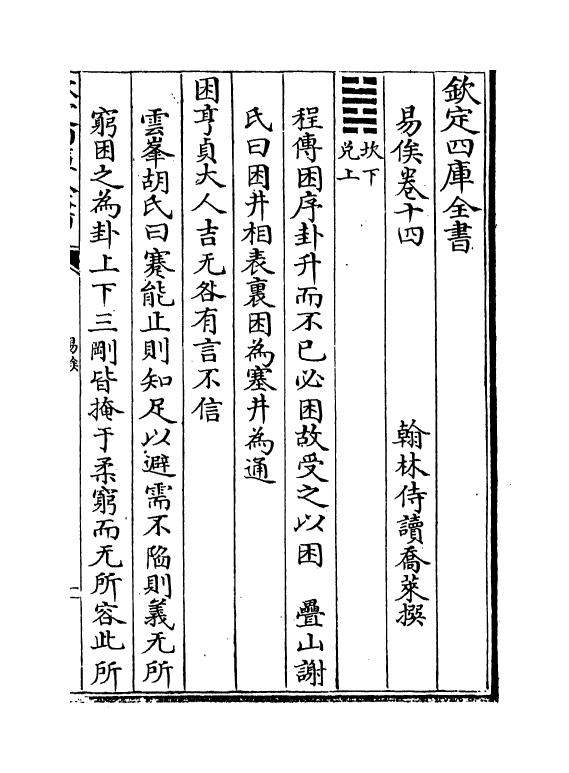 欽定四庫全書
易俟卷十四
翰林侍讀喬萊撰
坎下
兌上
程傳困序卦升而不已必困故受之以困　疊山謝
氏曰困井相表裏困為塞井為通
困亨貞大人吉无咎有言不信
雲峯胡氏曰蹇能止則知足以避需不陷則義无所
窮困之為卦上下三剛皆掩于柔窮而无所容此所
易俟